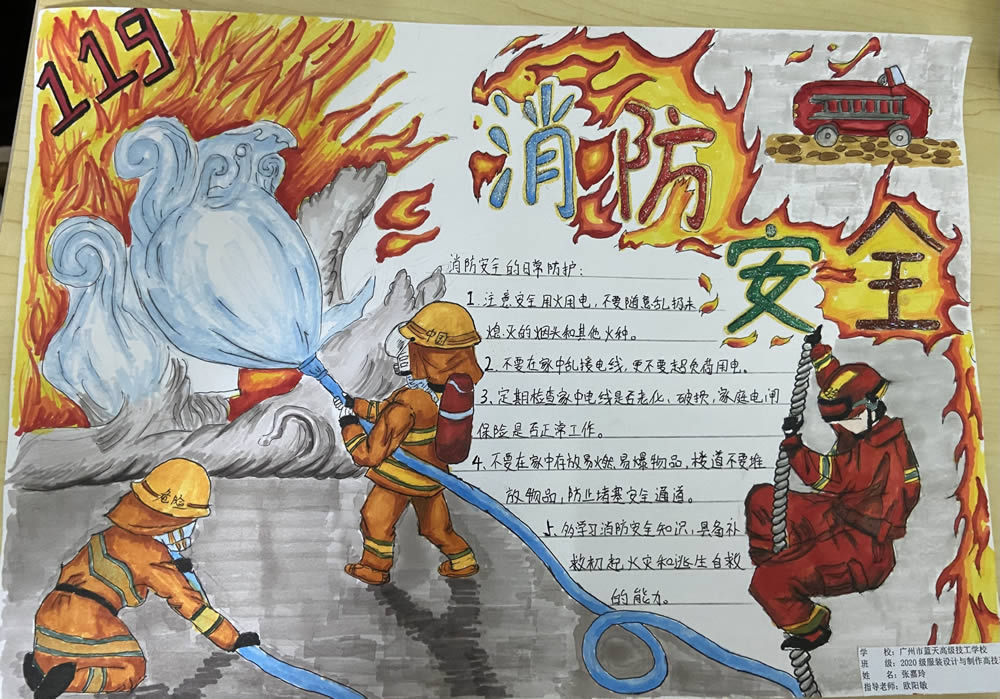 119
消防
安全
消防安全的日常防护:
1. 注意安全用火用电,不要随意乱扔未
熄灭的烟头和其他火种。
2. 不要在家中乱接电线,更不要超负荷用电。
3. 定期检查家中电线是否老化、破损,家庭电闸
保险是否正常工作。
4. 不要在家中存放易燃易爆物品,楼道不要堆
放物品,防止堵塞安全通道。
5. 多学习消防安全知识,具备补
救初起火灾和逃生自救
的能力。
中国
危险
学 校: 广州市蓝天高级技工学校
班 级: 2020级服装设计与制作高技
姓 名: 张嘉玲
指导老师: 欧阳敏